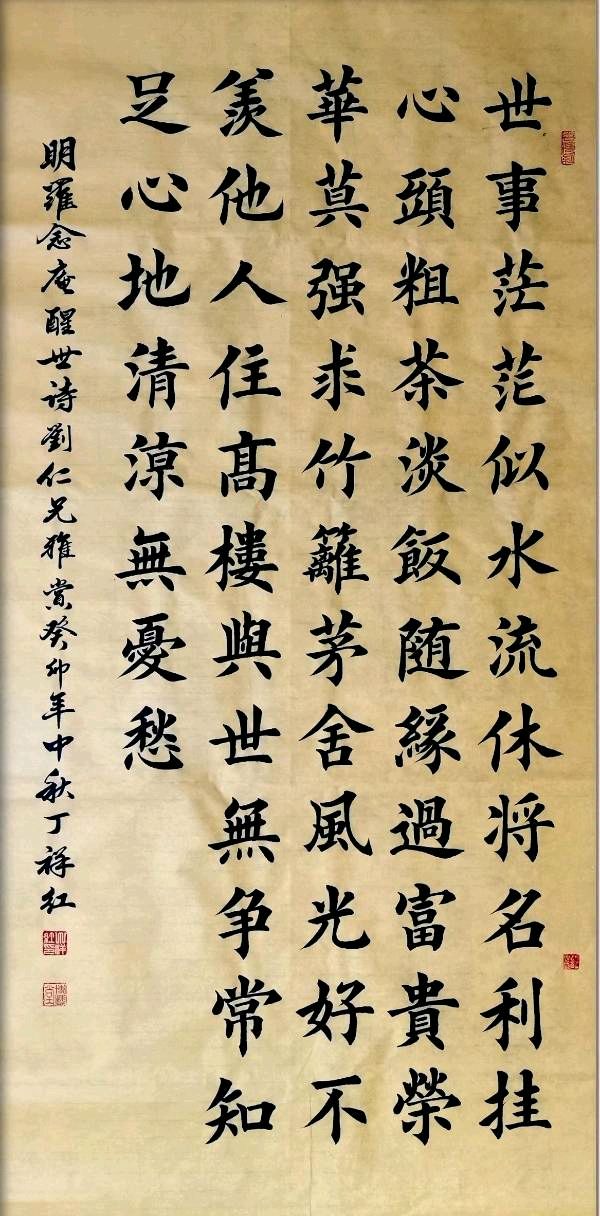 世事茫茫似水流休将名利挂
心頭粗茶淡飯随緣過富貴榮
華莫强求竹籬茅舍風光好不
羨他人住高樓與世無争常知
足心地清涼無憂愁
明羅念庵醒世诗劉仁兄雅赏癸卯年中秋丁祥红